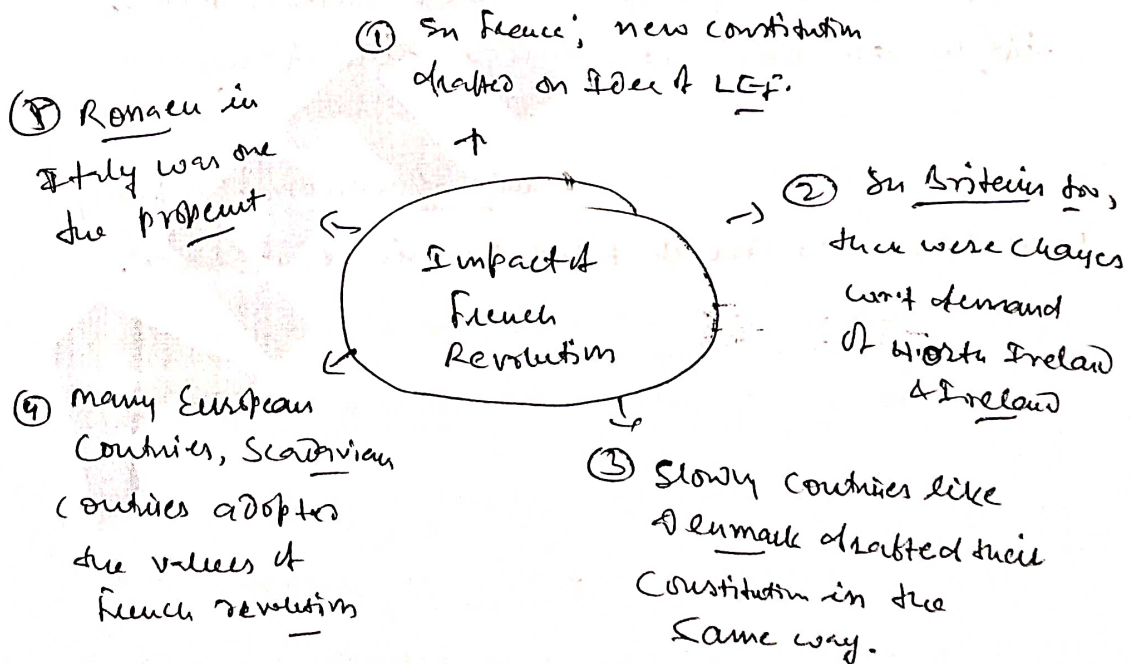 ① In France; new constitution
drafted on Idea of LEF.
② In Britain too,
there were changes
w.r.t demand
of North Ireland
& Ireland
③ Slowly countries like
Denmark drafted their
Constitution in the
Same way.
④ many European
Countries, Scadavian
countries adopted
the values of
French revolution
⑤ in
Italy was one
the
Impact of
French
Revolution